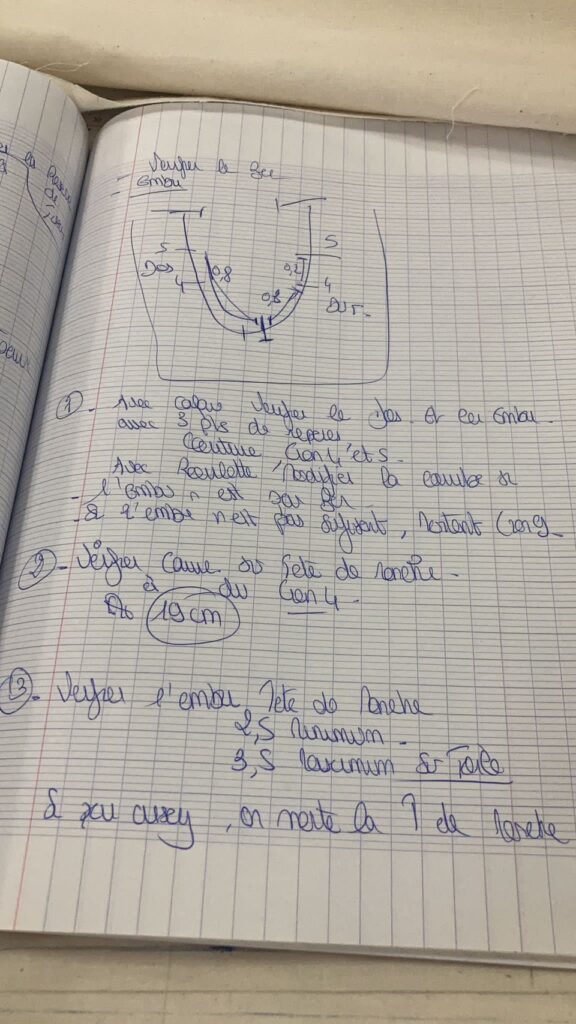 - Verifier le
- Embu
5
S
DOS
4
0,8
0,2
0,8
4
DVT.
① - Avec calque Verifier le dos et Embu.
avec 3 pts de repères
Ceinture Cran 4 et 5.
Avec Roulette, modifier la courbe si
- l'embu n'est pas
- Si l'embu n'est pas suffisant, montant Cran
② - Vérifier Tete de manche.
du Cran 4.
19 cm
③ - Verifier l'embu Tete de Manche
2,5 minimum.
3,5 maximum sur Toile
Si pas assez, on monte la T de manche